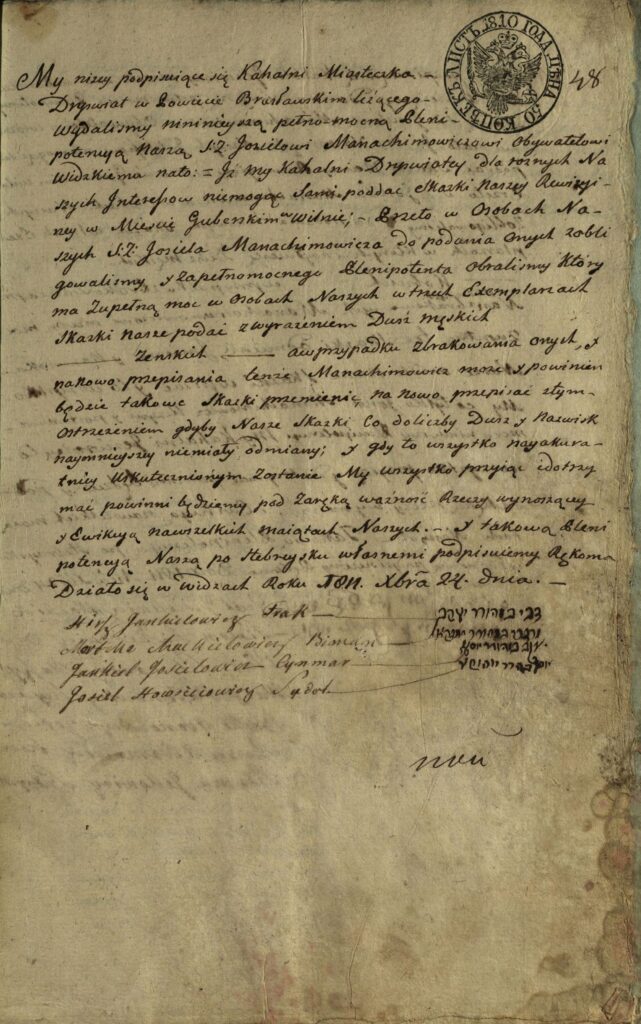 ЛИСТЪ. 1810 ГОДА. ЦѢНА 50 КОПѢЕКЪ
48
My niżey podpisuiące się Kahalni Miasteczka
Dryswiat w Powiecie Brasławskim leżącego
Wydalismy ninieyszą pełno-mocną Pleni
potencyą Naszą Josielowi Manachimowiczowi Obywatelowi
Widzkiemu nato: = Jż my Kahalni Dryswiatcy dla roznych Na
szych Jnteressow niemogąc Sami poddać Skazki Naszey Rewizyi
ney w Mieście Guberskim Wilnie; Przeto w Osobach Na-
szych Josiela Manachimowicza do podania Onych zobli
gowalismy, y zapełnomocnego Plenipotenta Obralismy Który
ma Zupełną moc w Osobach Naszych w trzech Exemplarzach
Skazki Nasze podać z wyrażeniem Dusz męskich
Zenskich awprzypadku zbrakowania onych, y
nanowo przepisania, tenże Manachimowicz może y powinien
będzie takowe Skazki przemienić, na nowo przepisać ztym
Ostrzeżeniem gdyby Nasze Skazki Co doliczby Dusz y Nazwisk
naymnieyszey niemiały odmiany; y gdy to wszystko nayakura-
tniey Uskutecznionym Zostanie My wszystko przyiąc idotrzy
mać powinni będziemy pod Zaręką ważność Rzeczy wynoszącey
y Ewikcyą nawszelkich maiątach Naszych. y takową Pleni
potencyą Naszą po Hebreysku własnemi podpisuiemy Rękoma
Działo się w Widzach Roku 1811. Xbra 24. dnia.
Hirsz Jankielowicz
Jankielowicz
Jankiel Josielowicz Cymmar
Josiel